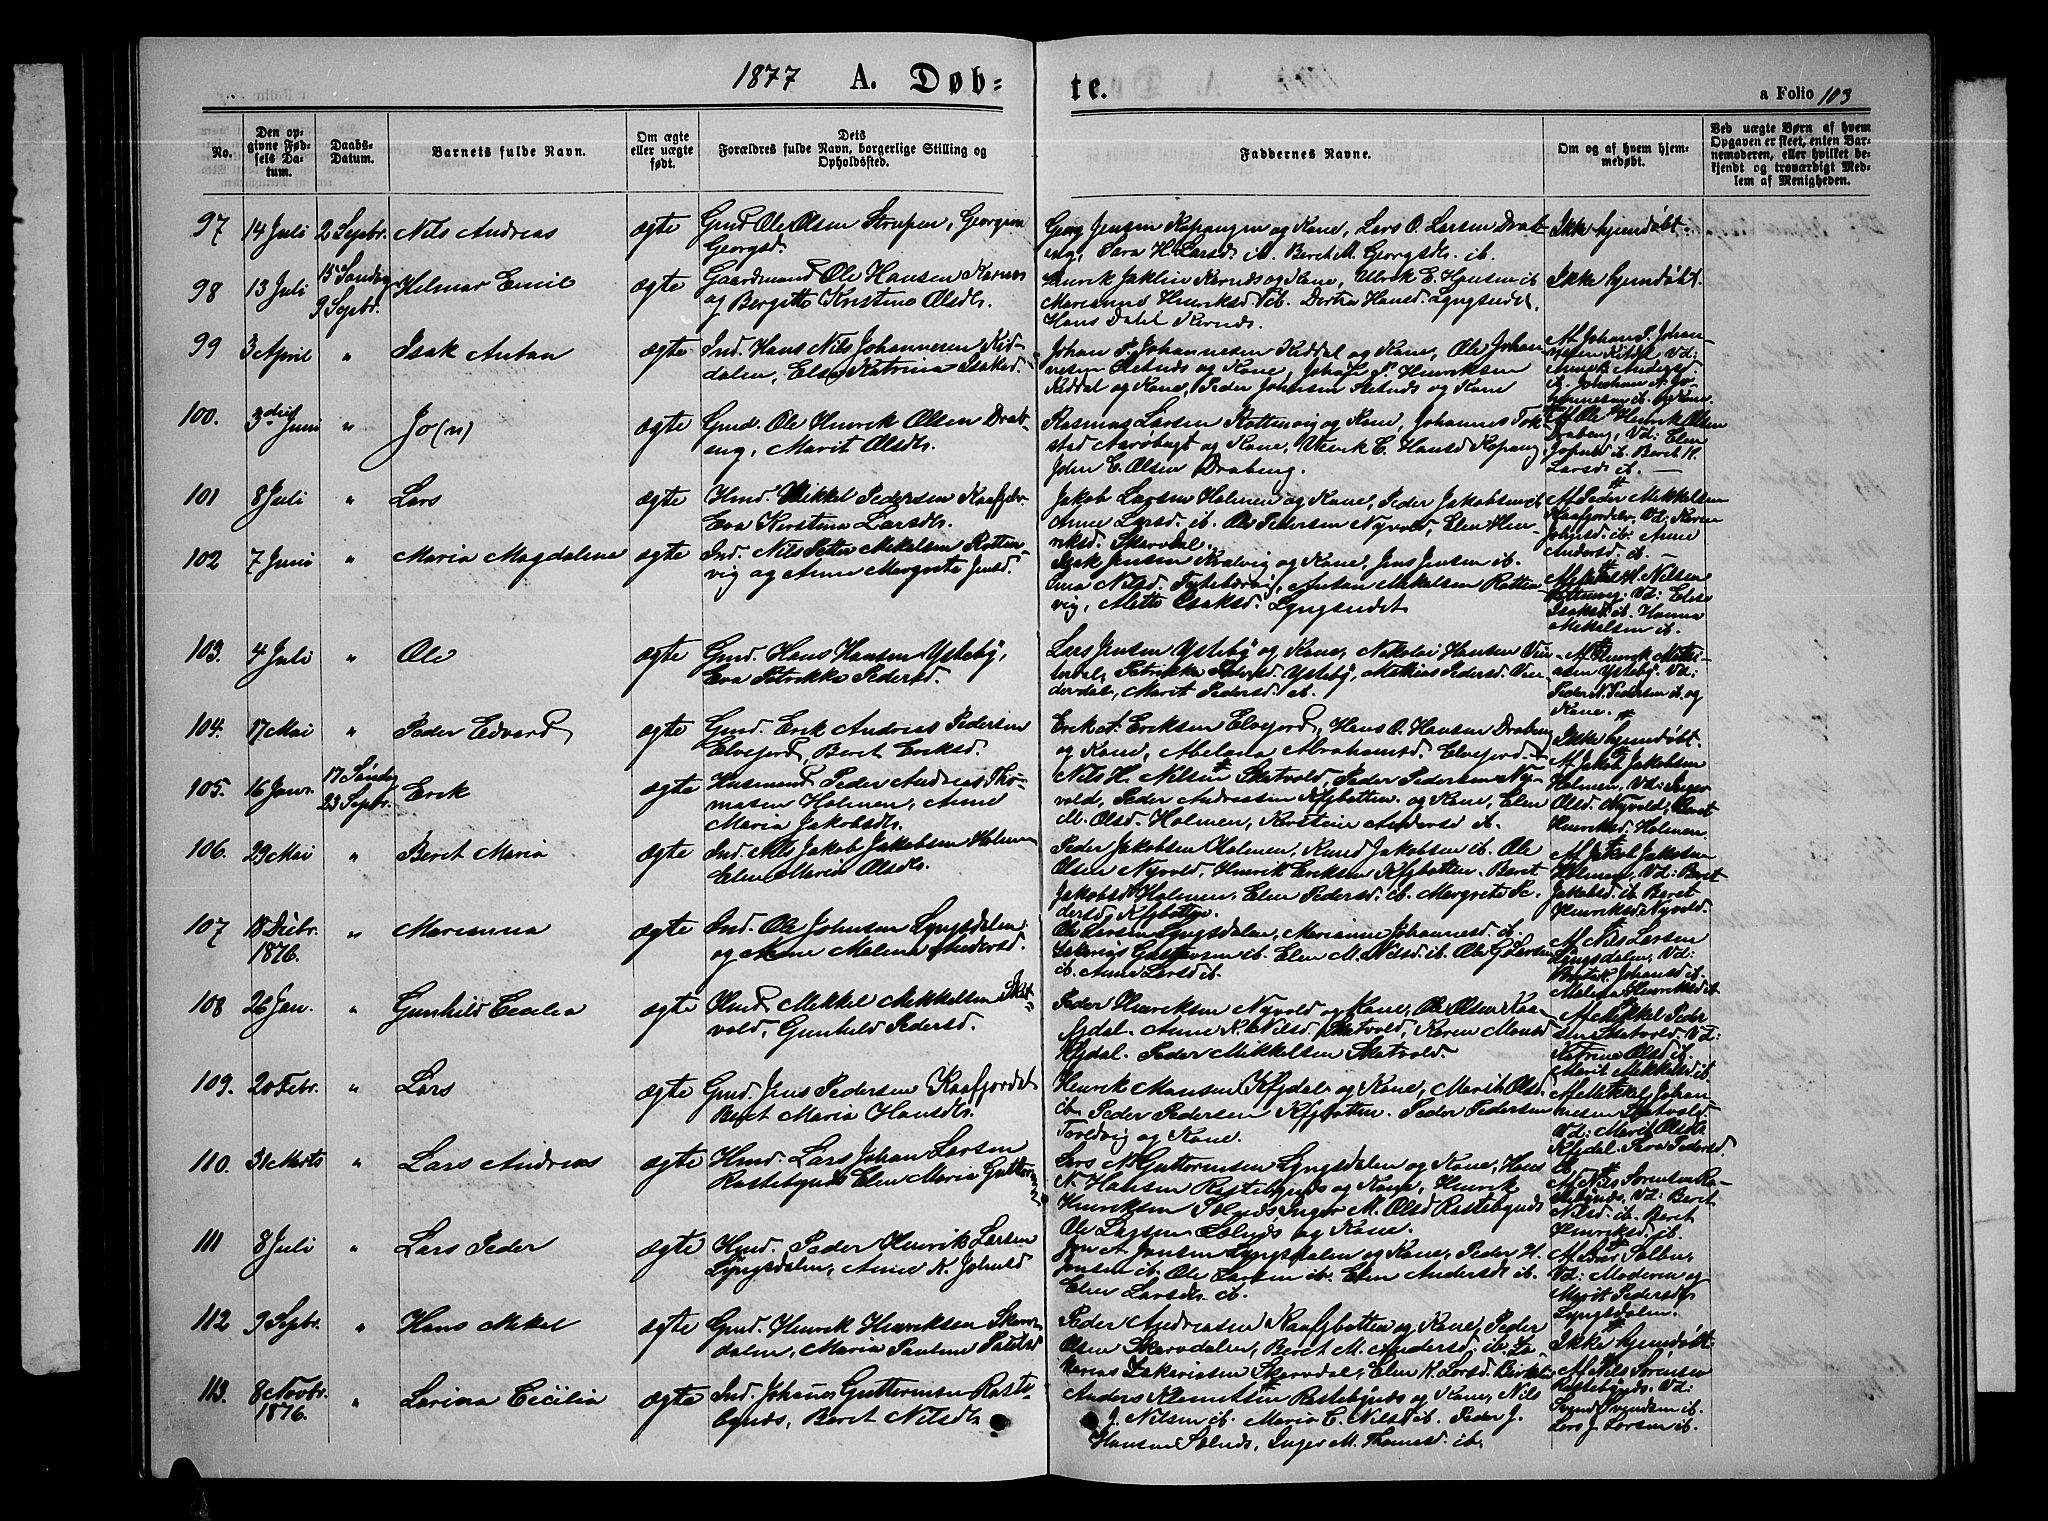 1877 A. Døb=
te.
a Folio 103
No.
Den op-
givne Fød-
sels Da-
tum.
Daabs-
Datum.
Barnets fulde Navn.
Om ægte
eller uægte
født.
Dets
Forældres fulde Navn, borgerlige Stilling og
Opholdssted.
Faddernes Navne.
Om og af hvem hjem-
medøbt.
Ved uægte Børn af hvem
Opgaven er skeet, enten Bar-
nemoderen, eller hvilket be-
kjendt og troværdigt Med-
lem af Menigheden.
97 14 Juli 2 Sepbr. Nils Andreas ægte Gmd Ole Olsen Strupen, Georgine
Georgsd.
Georg Jensen Kopangen og Kone, Lars O. Larsen Drab-
eng, Sara H. Larsds ib. Beret M. Georgsds. ib.
Ikke hjemdøbt.
98 13 Juli 15 Søndag
9 Sepbr.
Hilmar Emil ægte Gaardmand Ole Hansen
og Bergitte Kristine Olsdr.
Henrik og Kone, Ulrik E. Hansen ib
Marianne Henriksd ib. Dorthea Hansd. Lyngseidet,
Hans
Ikke hjemdøbt.
99 3 April " Isak Antan ægte Ind. Hans Nils Johannesen Kid-
dalen, Else Katrina Isaksd.
Johan P. Johannesen Kiddal og Kone, Ole Johan-
nesen og Kone, P. Henriksen
Kiddal og Kone, Peder Johnsen og Kone
Af Johan P. Johan-
nesen Kiddal Vd:
Andersd
ib. Johan N. Jo-
hannesen ib. og Kone.
100. 3die Juni " Jo(n) ægte Gmd. Ole Henrik Olsen Drab-
eng, Marit Olsdr.
Rasmus Larsen Rottenvig og Kone, Johannes Tok-
stad og Kone, C. Hansd Kopang
John E. Olsen Drabeng.
Af Ole Henrik Olsen
Drabeng, Vd: Elen
Johnsd ib. Beret H.
Larsds ib.
101 8 Juli " Lars ægte Hmd. Mikkel Pedersen Kaafjdbr.
Eva Kirstina Larsdr.
Jakob Larsen Holmen og Kone, Peder Jakobsen ib
Anne Larsd. ib. Ole Pedersen Nyvold, Elen Hen-
riksd. Skarvdal.
Af Peder Mikkelsen
Kaafjorddr. Vd: Karen
Johnsd. ib. Anne
Andersd. ib.
102 7 Juni " Maria Magdalena ægte Ind. Nils Petter Mikalsen Rotten-
vig og Anne Margrete Jensd.
Isak Jensen Kvalvig og Kone, Jens Jensen ib.
Nilsd. Antan Mikalsen Rotten-
vig, Mette Isaksd. Lyngseidet
H. Nilsen
Rottenvig. Vd: Else
Isaksd ib. Hanna
Mikalsen ib.
103. 4 Juli " Ole ægte Gmd. Hans Hansen Ysteby,
Eva Petrikke Pedersd.
Lars Jensen Ysteby og Kone, Nikolai Hansen Oln-
terdal, Petrikke Ysteby, Mathias Pedersd.
Marit Pedersd. ib.
Af Henrik Mathi-
asen Ysteby. Vd:
Peder N. Pedersen ib. og
Kone.
104. 17 Mai " Peder Edvard ægte Gmd. Erik Andreas Pedersen
Elvejord, Beret Eriksd.
Erik A. Eriksen Elvejord, Hans O. Hansen Drabeng
og Kone, Abelona Abrahamsd. Elvejord.
Ikke hjemdøbt.
105. 16 Janr. 17 Søndag
23 Sepbr.
Erik ægte Husmand Peder Andreas Tho-
masen Holmen, Anne
Maria Jakobsdr.
Nils H. Nilsen Skatvold, Peder Pedersen Ny-
vold, Peder Andreasen Kfjbotten og Kone, Elen
M. Olsd. Holmen, Kirstine Andersd ib.
Af Jakob Jakobsen
Holmen, Vd: Inger
Olsd. Nyvold, Beret
Henriksd. Holmen.
106. 29 Mai " Beret Maria ægte Ind. Jakob Jakobsen Holmen
Elen Maria Olsdr.
Peder Jakobsen Holmen, Knud Jakobsen ib. Ole
Olsen Nyvold, Henrik Eriksen Kfjbotten. Beret
Jakobsd. Holmen, Elen Pedersd. ib. Margrete Pe-
dersd. Kfjbotten.
Af Jakob Jakobsen
Holmen, Vd: Beret
Jakobsd. ib. Beret
Henriksd. Nyvold.
107 18 Debr.
1876.
" Marianna ægte Ind. Ole Johnsen Lyngsdalen
og Anne Malena Andersd.
Ole Larsen Lyngsdalen, Marianne Johannesd. ib.
Sakarias Gustavsen ib. Elen M. Nilsd. ib. Ole G. Larsen
ib. Anne Larsd ib.
Af Nils Larsen
Lyngsdalen, Vd:
Johansd ib.
Malena Henriksd ib.
108 26 Jan. " Gunhild Cecilia ægte Gmd Mekkel Mikkelsen Skat-
vold, Gunhild Pedersd.
Peder Henriksen Nyvold og Kone, Ole Olsen Kaa-
fjdal. Anne K. Nilsd. Skatvold, Karen Monsd
Kfjdal. Peder Mikkelsen Skatvold.
Af Mikkel Peder-
sen Skatvold. Vd:
Katrine Olsd ib.
Marit Mekkelsd ib.
109. 20 Febr. " Lars ægte Gmd. Jens Pedersen Kaafjordal
Beret Maria Hansdr.
Henrik Mansen Kfjdal og Kone, Marit Olsd.
ib Peder Pedersen Kfjbotten. Peder Pedersen
og Kone.
Af Mikkel Johan-
nesen Skatvold
Vd: Marit Olsdr.
Kfjdal. Eva Pedersd.
ib
110. 31 Marts " Lars Andreas ægte Hmd. Lars Johan Larsen
Rastebynds Elen Maria Guttorms
Lars N. Guttormsen Lyngsdalen og Kone, Hans
N. Hansen Rastebynds og Kone, Henrik
Henriksen Solnds Inger M. Olsd Rastebynds
Ole Larsen Solnds og Kone.
Af Nils Sørensen Ra-
stebynds, Vd: Beret
Nilsd ib. Beret
Henriksd. ib.
111 8 Juli " Lars Peder ægte Hmd. Peder Henrik Larsen
Lyngsdalen, Anne K. Johnsd
Jon A. Jonsen Lyngsdalen og Kone, Peder H.
Jonsen ib. Ole Larsen ib. Elen Andersdr ib.
Elen Larsdr. ib.
Vd: Moderen og
Marit Pedersdr
Lyngsdalen.
112 9 Sepbr. " Hans Mikal ægte Gmd. Henrik Henriksen Skarv-
dalen, Maria Pauline
Peder Andreasen Kaafjbotten og Kone, Peder
Olsen Skarvdalen, Beret M. Andersd. ib. Sa-
karias Zakariasen Skarvdal, Elen K. Larsd.
Ikke hjemdøbt
113. 8 Novbr.
1876.
" Larina Cecilia ægte Ind. Johan Guttormsen Raste-
bynds, Beret Nilsdr.
Anders Klemetsen Rastebynds og Kone, Nils
J. Nilsen ib. Maria C. Nilsd ib. Peder J.
Hansen Solnds, Inger M. Thomasd. ib.
Af Nils Sørensen
Rastebynds. Vd:
Svend Svendsen ib
Lars J. Larsen ib.